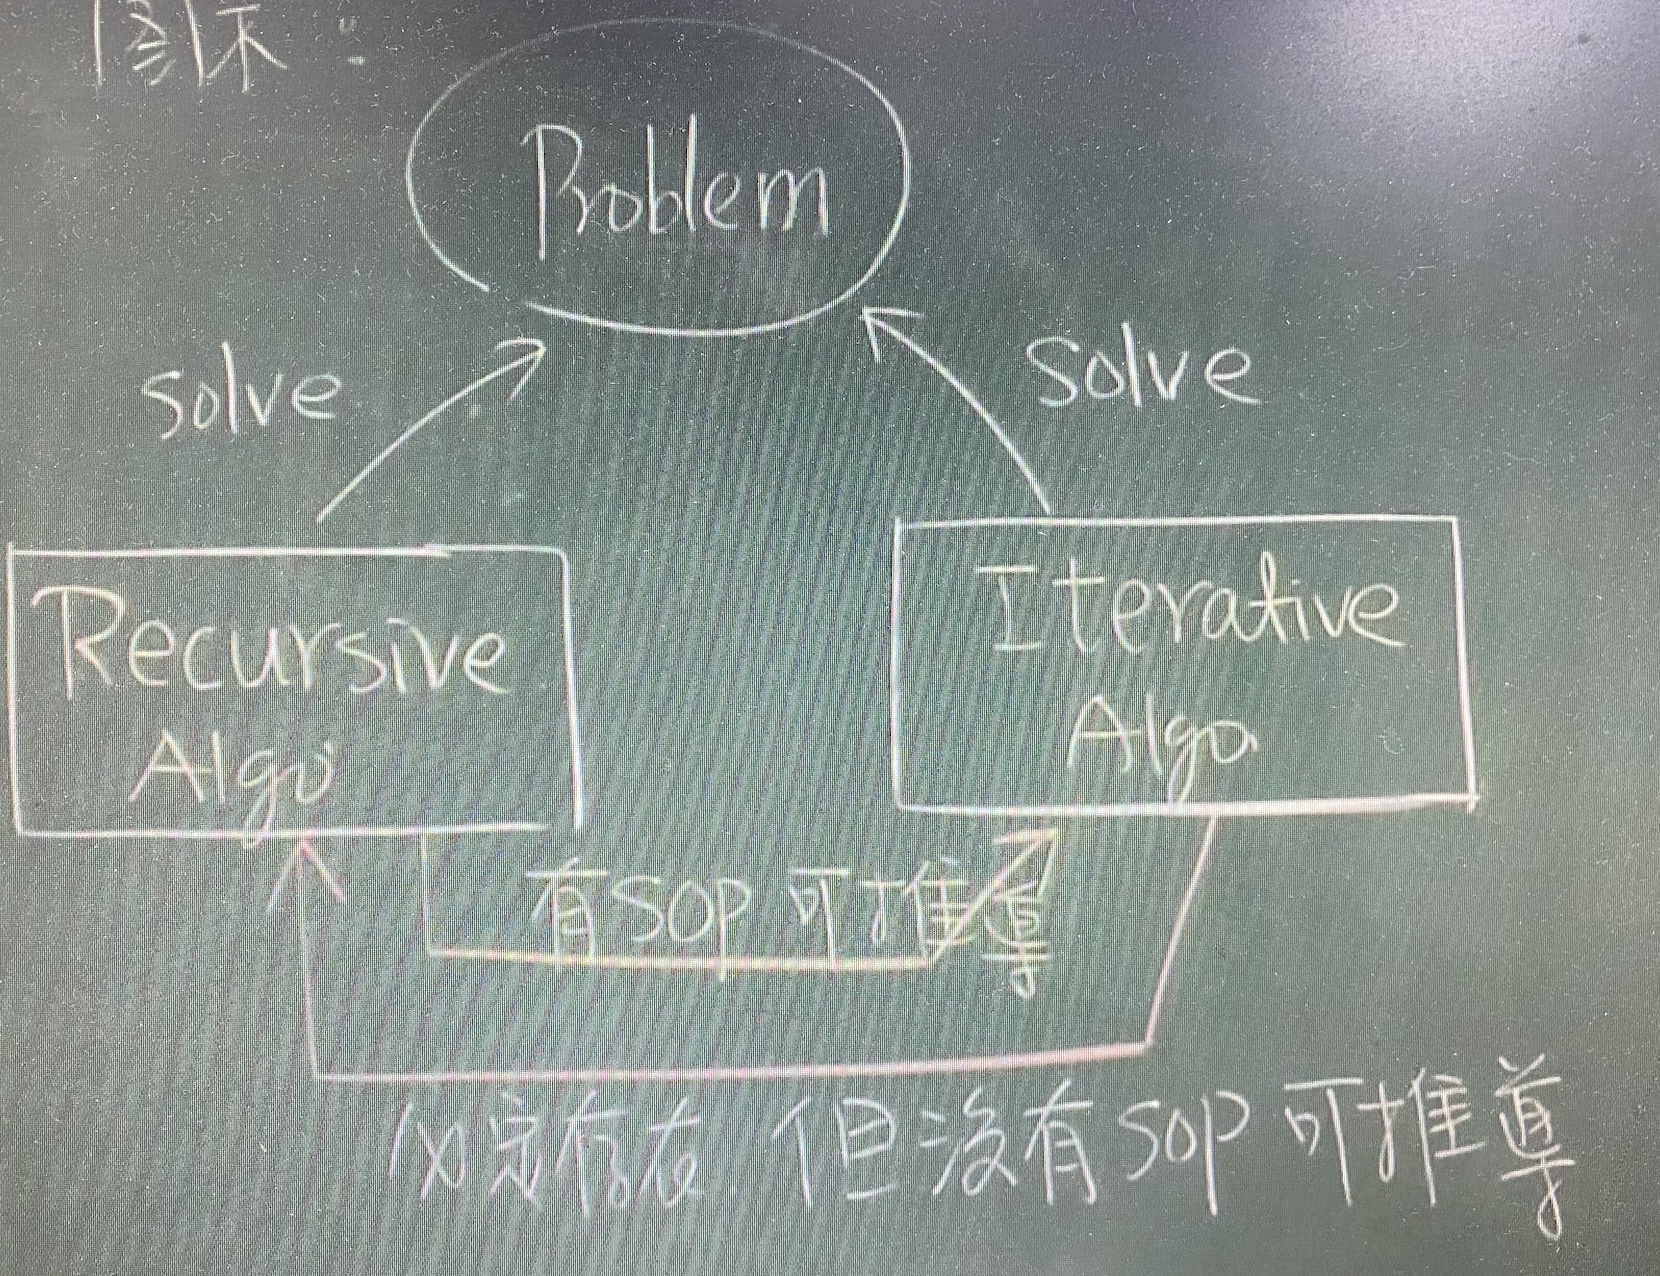 图示：
Problem
solve
solve
Recursive
Algo
Iterative
Algo
有SOP可推導
必定存在 但沒有SOP可推導